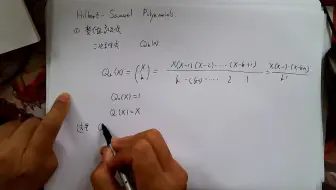 Hilbert - Samuel Polynomials.
① 整值多项式
二项多项式 Qₖ(x)
Qₖ(X) = (X k) = X(X-1)(X-2)·····(X-k+1) / k·(k-1)····· 2 1 = X(X-1)··(X-k+1) / k!
Q₀(X) = 1
Q₁(X) = X